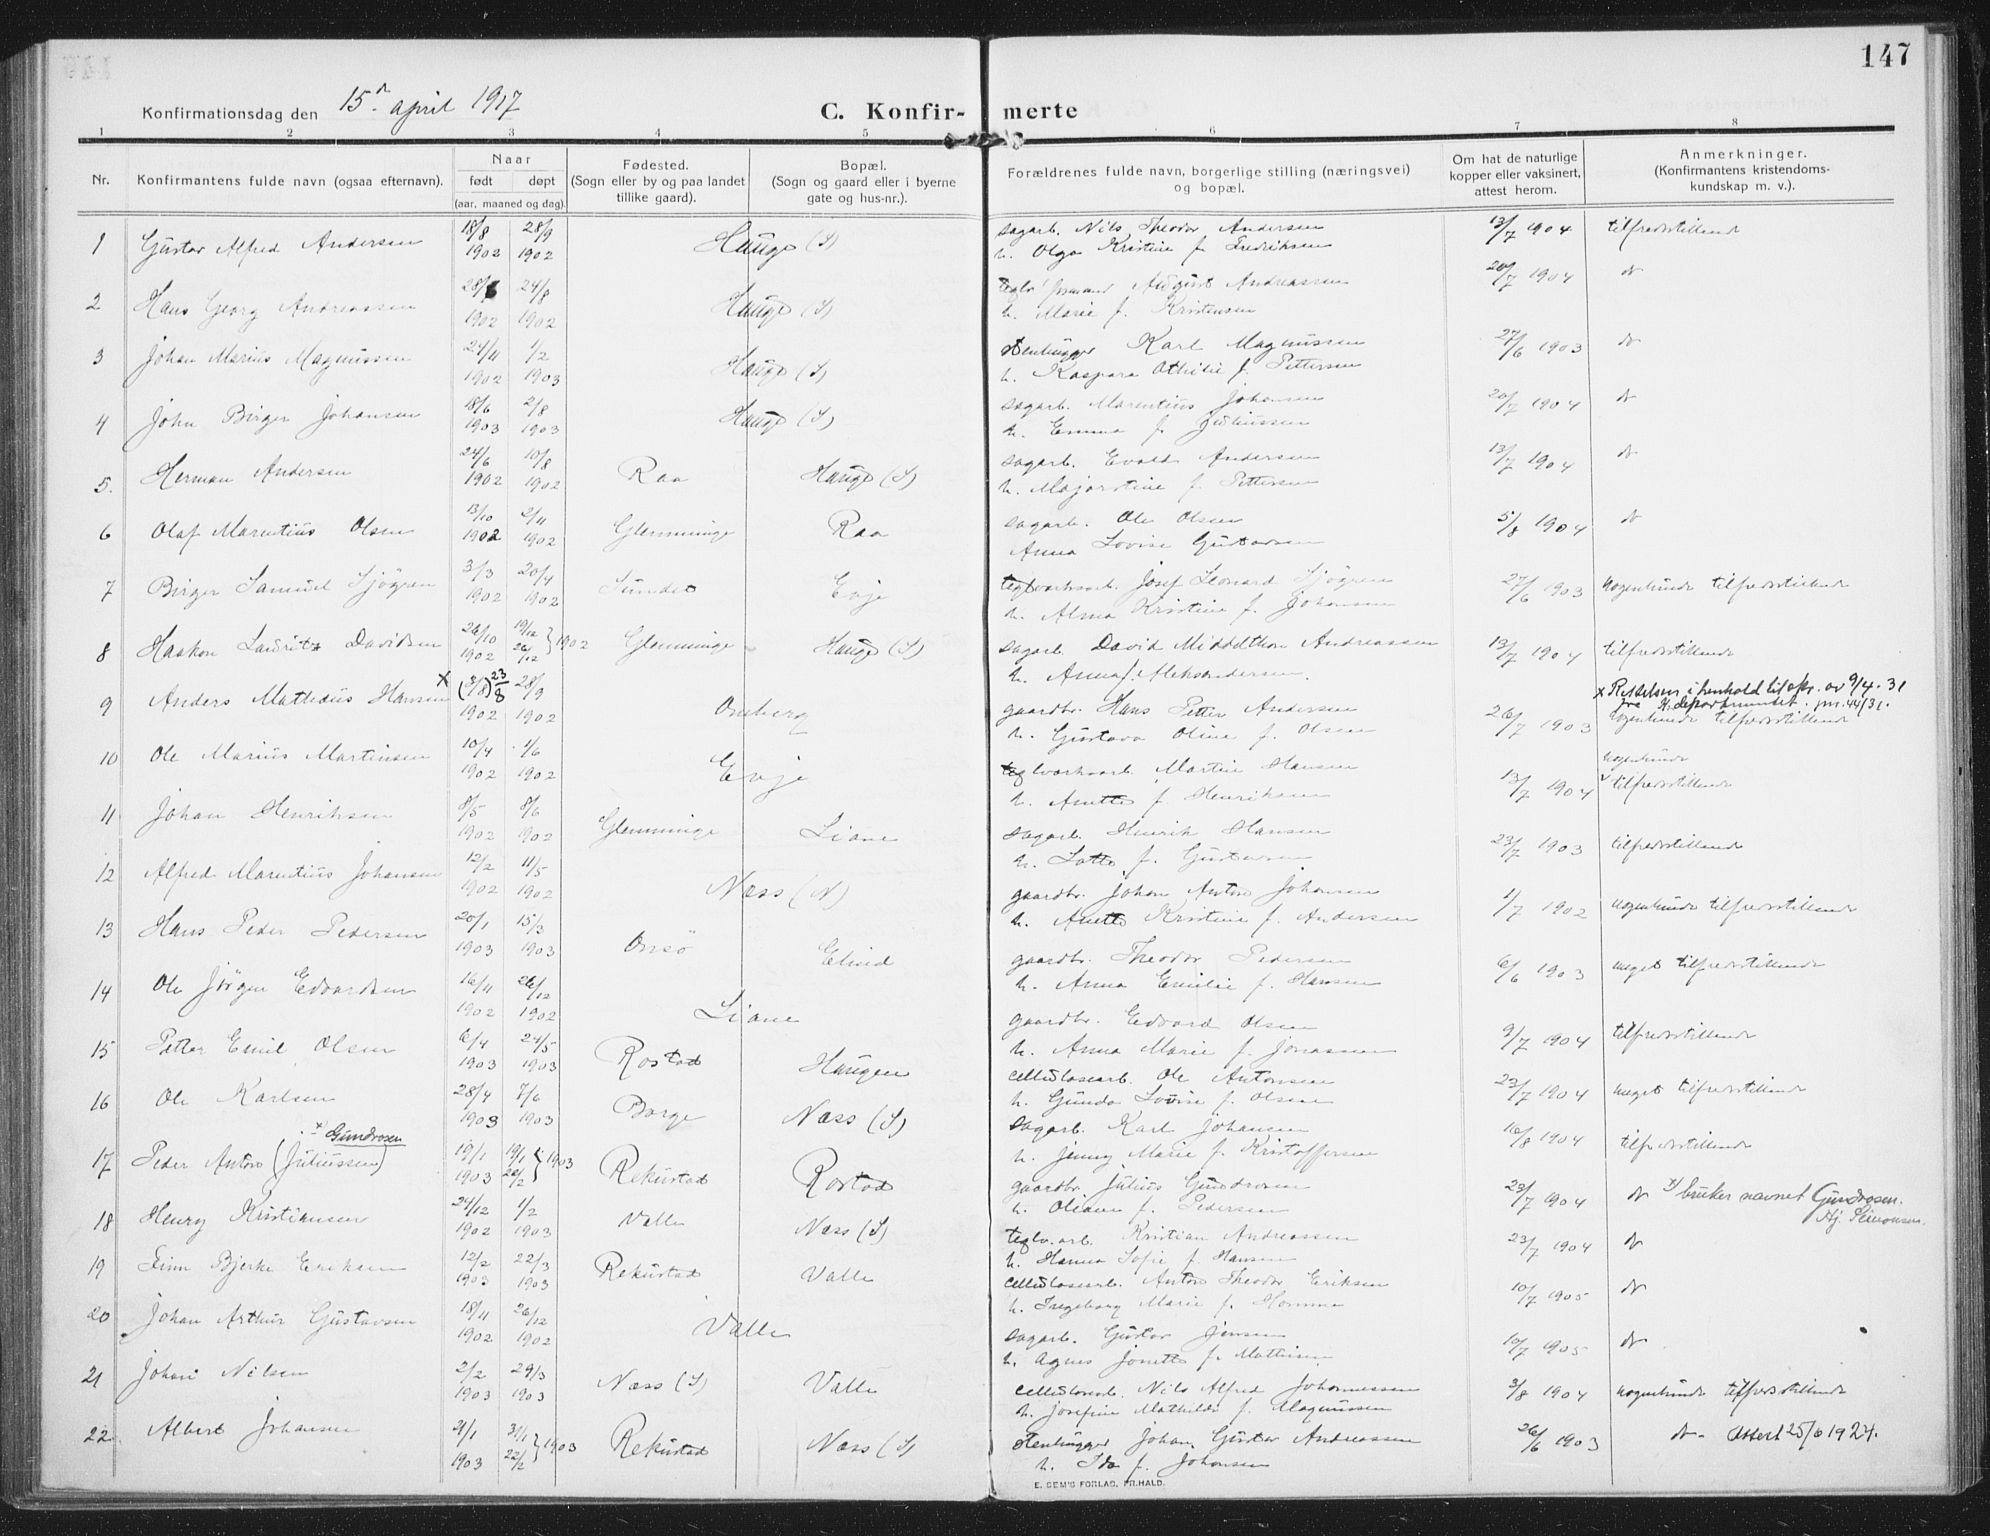 147
Konfirmationsdag den 15de april 1917
C. Konfir- merte
1 2 3 4 5 6 7 8
Nr.
Konfirmantens fulde navn (ogsaa efternavn).
Naar
født døpt
(aar, maaned og dag).
Fødested.
(Sogn eller by og paa landet
tillike gaard).
Bopæl.
(Sogn og gaard eller i byerne
gate og hus-nr.).
Forældrenes fulde navn, borgerlige stilling (næringsvei)
og bopæl.
Om hat de naturlige
kopper eller vaksinert,
attest herom.
Anmerkninger.
(Konfirmantens kristendoms-
kundskap m. v.).
1 Gustav Alfred Andersen 18/8 1902 28/9 1902 Hauge (S) sagarb. Nils Theodor Andersen 13/7 1904 tilfredsstillende
h. Olga Kristine f. Fredriksen
2 Hans Georg Andreassen 28/6 1902 24/8 1902 Hauge (S) teglv. formand August Andreassen 20/7 1904 do
h. Marie f. Kristensen
3 Johan Marius Magnussen 24/11 1902 1/2 1903 Hauge (S) stenhugger Karl Magnussen 27/6 1903 do
h. Kaspara Othilie f. Pettersen
4 John Birger Johansen 18/6 1903 2/8 1903 Hauge (S) sagarb. Marentius Johansen 20/7 1904 do
h. Emma f. Juliussen
5. Herman Andersen 24/6 1902 10/8 1902 Raa Hauge (S) sagarb. Evald Andersen 13/7 1904 do
h. Majastine f. Pettersen
6 Olaf Marentius Olsen 13/10 1902 2/11 1902 Glemminge Raa sagarb. Ole Olsen 5/8 1904 do
Anna Lovise Gustavsen
7 Birger Samuel Sjögren 3/3 1902 20/4 1902 Sundet Evje teglverksarb. Josef Leonard Sjögren 27/6 1903 nogenlunde tilfredsstillende
h. Alma Kristine f. Johansen
8 Haakon Lauritz Davidsen 26/10 1902 19/12 26/12 } 1902 Glemminge Hauge (S) sagarb. David Middelthon Andreassen 13/7 1904 tilfredsstillende
h. Anna f. Aleksandersen.
9 Anders Mathæus Hansen x (3/8) 23/8 1902 28/9 1902 Omberg gaardbr. Hans Petter Andersen 26/7 1903 nogenlunde tilfredsstillende
h. Gustava Oline f. Olsen
x Rettelsen i henhold til skr. av 9/4. 31
fra K. departementet. jnr. 44/31.
10 Ole Marius Martinsen 10/4 1902 1/6 1902 Evje teglverksarb. Martin Hansen 13/7 1904 nogenlunde tilfredsstillende
h. Anette f. Henriksen
11 Johan Henriksen 8/5 1902 8/6 1902 Glemminge Liane sagarb. Henrik Hansen 23/7 1903 tilfredsstillende
h. Lotte f. Gustavsen
12 Alfred Marentius Johansen 12/2 1902 11/5 1902 Næss (N) gaardbr. Johan Anton Johansen 1/7 1902 nogenlunde tilfredsstillende
h. Anette Kristine f. Andersen
13 Hans Peder Pedersen 20/1 1903 15/3 1903 Onsö Elind gaardbr. Theodor Pedersen 6/6 1903 meget tilfredsstillende
h. Anna Emilie f. Hansen
14 Ole Jörgen Edvardsen 16/11 1902 26/12 1902 Liane gaardbr. Edvard Olsen 9/7 1904 tilfredsstillende
h. Anna Marie f. Jonassen
15 Petter Emil Olsen 6/4 1903 24/5 1903 Rostad Haugen cellulosearb. Ole Antonsen 23/7 1904 meget tilfredsstillende
h. Gunda Lovise f. Olsen
16 Ole Karlsen 28/4 1903 7/6 1903 Borge Næss (S) sagarb. Karl Johansen 16/8 1904 tilfredsstillende
h. Jenny Marie f. Kristoffersen
17 Peder Anton (Juliussen) x) Gundrosen 19/1 1903 19/1 20/2 } 1903 Rekustad Rostad gaardbr. Julius Gundrosen 23/7 1904 do x) bruker navnet Gundrosen.
h. Oliane f. Pedersen
18 Henry Kristiansen 24/12 1902 1/2 1903 Valle Næss (S) teglv. arb. Kristian Andreassen 23/7 1904 do
h. Hanna Sofie f. Hansen
19 Finn Bjerke Eriksen 12/2 1903 22/3 1903 Rekustad Valle cellulosearb. Anton Theodor Eriksen 10/7 1905 do
h. Ingeborg Marie f. Homme
20 Johan Arthur Gustavsen 18/11 1902 26/12 1902 Valle sagarb. Gustav Jensen 10/7 1905 do
h. Agnes Jonette f. Mathisen
21 Johan Nilsen 2/2 1903 29/3 1903 Næss (S) Valle cellulosearb. Nils Alfred Johannessen 3/8 1904 nogenlunde tilfredsstillende
h. Josefine Mathilde f. Magnussen
22. Albert Johansen 21/1 1903 31/1 22/2 } 1903 Rekustad Næss (S) stenhugger Johan Gustav Andreassen 26/6 1903 do - Attest 25/6 1924.
h. Ida f. Johansen
E. SEM'S FORLAG, FR.HALD.